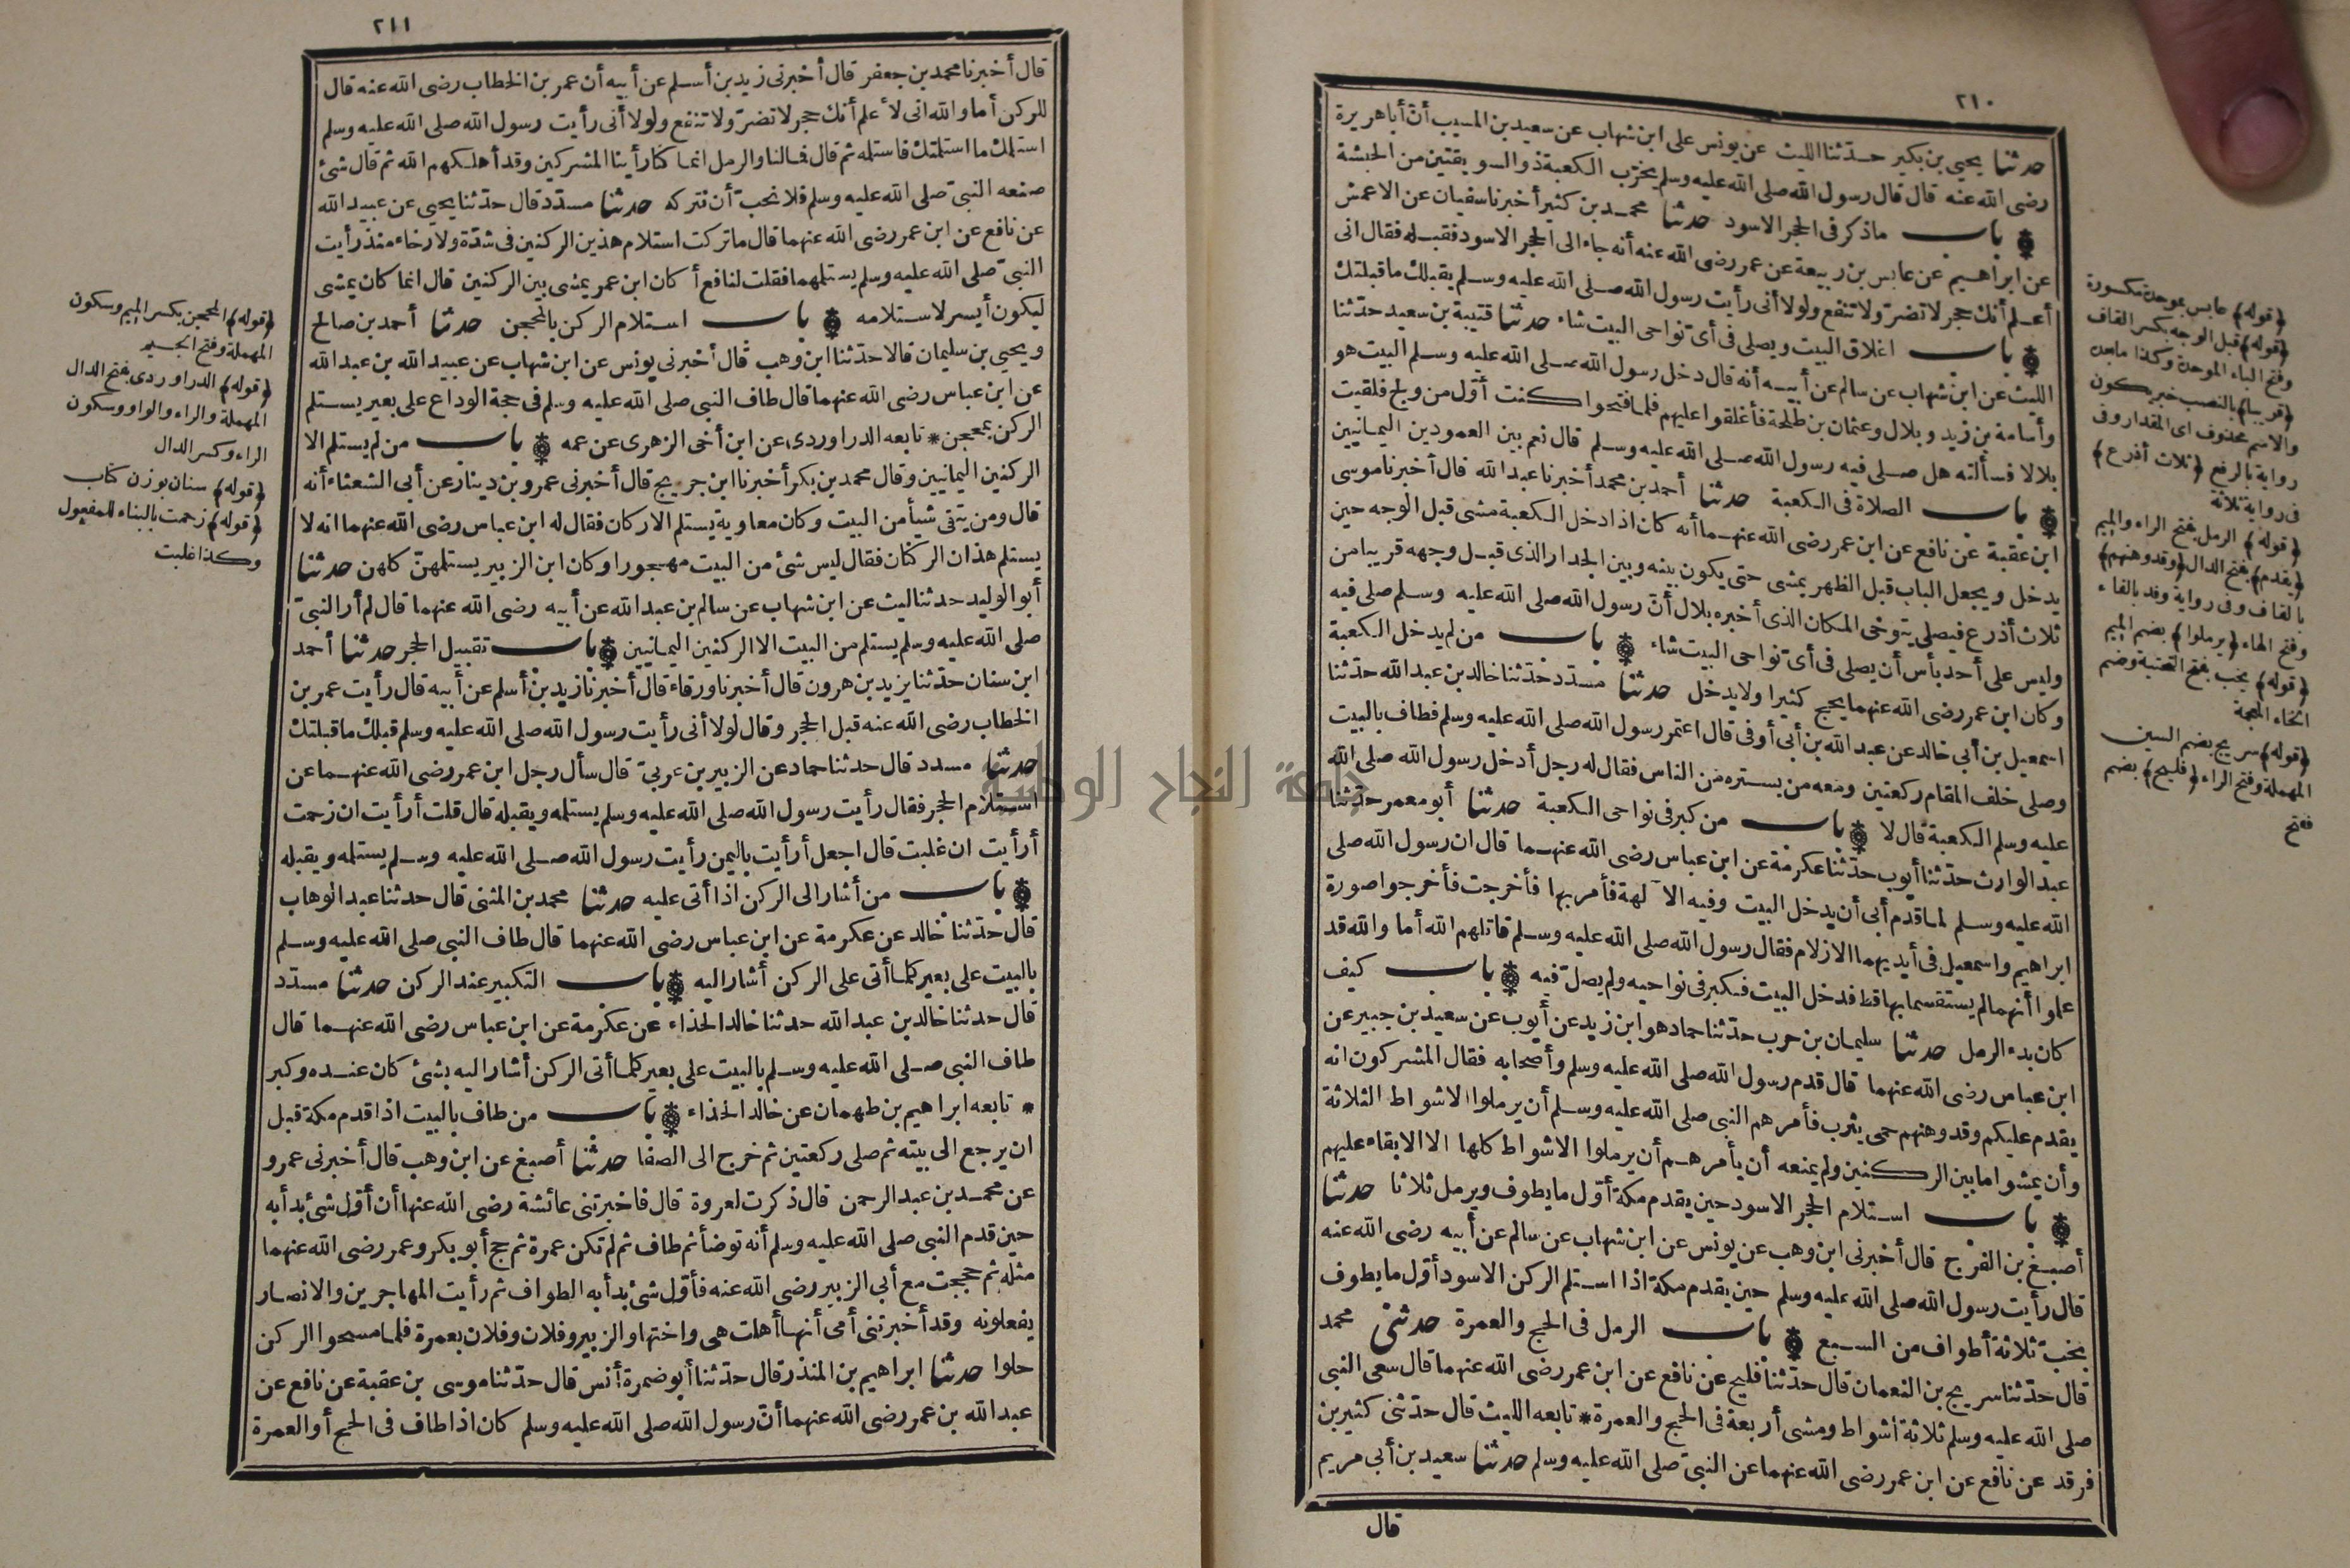 ٢١٠
حدثنا يحيى بن بكير حدثنا الليث عن يونس على ابن شهاب عن سعيد بن المسيب أن أبا هريرة
رضى الله عنه قال قال رسول الله صلى الله عليه وسلم يخرّب الكعبة ذو السويقتين من الحبشة
باب ما ذكر فى الحجر الاسود حدثنا محمد بن كثير أخبرنا سفيان عن الاعمش
عن ابراهيم عن عابس بن ربيعة عن عمر رضى الله عنه أنه جاء الى الحجر الاسود فقبله فقال انى
أعلم أنك حجر لا تضرّ ولا تنفع ولولا أنى رأيت رسول الله صلى الله عليه وسلم يقبلك ما قبلتك
باب اغلاق البيت ويصلى فى أىّ نواحى البيت شاء حدثنا قتيبة بن سعيد حدّثنا
الليث عن ابن شهاب عن سالم عن أبيه أنه قال دخل رسول الله صلى الله عليه وسلم البيت هو
وأسامة بن زيد وبلال وعثمان بن طلحة فأغلقوا عليهم فلما فتحوا كنت أوّل من ولج فلقيت
بلالا فسألته هل صلى فيه رسول الله صلى الله عليه وسلم قال نعم بين العمودين اليمانيين
باب الصلاة فى الكعبة حدثنا أحمد بن محمد أخبرنا عبد الله قال أخبرنا موسى
ابن عقبة عن نافع عن ابن عمر رضى الله عنهما أنه كان اذا دخل الكعبة مشى قبل الوجه حين
يدخل ويجعل الباب قبل الظهر يمشى حتى يكون بينه وبين الجدار الذى قبل وجهه قريبا من
ثلاث أذرع فيصلى يتوخى المكان الذى أخبره بلال أنّ رسول الله صلى الله عليه وسلم صلى فيه
وليس على أحد بأس أن يصلى فى أىّ نواحى البيت شاء باب من لم يدخل الكعبة
وكان ابن عمر رضى الله عنهما يحج كثيرا ولا يدخل حدثنا مسدّد حدّثنا خالد بن عبد الله حدّثنا
اسمعيل بن أبى خالد عن عبد الله بن أبى أوفى قال اعتمر رسول الله صلى الله عليه وسلم فطاف بالبيت
وصلى خلف المقام ركعتين ومعه من يستره من الناس فقال له رجل أدخل رسول الله صلى الله
عليه وسلم الكعبة قال لا باب من كبر فى نواحى الكعبة حدثنا أبو معمر حدّثنا
عبد الوارث حدّثنا أيوب حدّثنا عكرمة عن ابن عباس رضى الله عنهما قال ان رسول الله صلى
الله عليه وسلم لما قدم أبى أن يدخل البيت وفيه الآلهة فأمر بها فأخرجت فأخرجوا صورة
ابراهيم واسمعيل فى أيديهما الازلام فقال رسول الله صلى الله عليه وسلم قاتلهم الله أما والله قد
علموا أنهما لم يستقسما بها قط فدخل البيت فكبر فى نواحيه ولم يصلّ فيه باب كيف
كان بدء الرمل حدثنا سليمان بن حرب حدّثنا حماد هو ابن زيد عن أيوب عن سعيد بن جبير عن
ابن عباس رضى الله عنهما قال قدم رسول الله صلى الله عليه وسلم وأصحابه فقال المشركون انه
يقدم عليكم وقد وهنهم حمى يثرب فأمرهم النبى صلى الله عليه وسلم أن يرملوا الاشواط الثلاثة
وأن يمشوا ما بين الركنين ولم يمنعه أن يأمرهم أن يرملوا الاشواط كلها الا الابقاء عليهم
باب استلام الحجر الاسود حين يقدم مكة أوّل ما يطوف ويرمل ثلاثا حدثنا
أصبغ بن الفرج قال أخبرنى ابن وهب عن يونس عن ابن شهاب عن سالم عن أبيه رضى الله عنه
قال رأيت رسول الله صلى الله عليه وسلم حين يقدم مكة اذا استلم الركن الاسود أوّل ما يطوف
يخبّ ثلاثة أطواف من السبع باب الرمل فى الحج والعمرة حدثنى محمد
قال حدّثنا سريج بن النعمان قال حدّثنا فليح عن نافع عن ابن عمر رضى الله عنهما قال سعى النبى
صلى الله عليه وسلم ثلاثة أشواط ومشى أربعة فى الحج والعمرة * تابعه الليث قال حدّثنى كثير بن
فرقد عن نافع عن ابن عمر رضى الله عنهما عن النبىّ صلى الله عليه وسلم حدثنا سعيد بن أبى مريم
قال
(قوله) عابس بموحدة مكسورة
(قوله) قبل الوجه بكسر القاف
وفتح الباء الموحدة وكذا ما بعد
(قريبا) بالنصب خبر يكون
والاسم محذوف اى المقدار وفى
رواية بالرفع (ثلاث أذرع)
فى رواية ثلاثة
(قوله) الرمل بفتح الراء والميم
(يقدم) بفتح الدال (وقد وهنهم)
بالقاف وفى رواية وفد بالفاء
وفتح الهاء (يرملوا) بضم الميم
(قوله) يخب بفتح التحتية وضم
الخاء المعجمة
(قوله) سريج بضم السين
المهملة وفتح الراء (فليح) بضم
ففتح
٢١١
قال أخبرنا محمد بن جعفر قال أخبرنى زيد بن أسلم عن أبيه أن عمر بن الخطاب رضى الله عنه قال
للركن أما والله انى لأعلم أنك حجر لا تضرّ ولا تنفع ولولا أنى رأيت رسول الله صلى الله عليه وسلم
استلمك ما استلمتك فاستلمه ثم قال فمالنا والرمل انما كنا رأينا المشركين وقد أهلكهم الله ثم قال شئ
صنعه النبىّ صلى الله عليه وسلم فلا نحبّ أن نتركه حدثنا مسدّد قال حدّثنا يحيى عن عبيد الله
عن نافع عن ابن عمر رضى الله عنهما قال ما تركت استلام هذين الركنين فى شدّة ولا رخاء منذ رأيت
النبىّ صلى الله عليه وسلم يستلمهما فقلت لنافع أكان ابن عمر يمشى بين الركنين قال انما كان يمشى
ليكون أيسر لاستلامه باب استلام الركن بالمحجن حدثنا أحمد بن صالح
ويحيى بن سليمان قالا حدّثنا ابن وهب قال أخبرنى يونس عن ابن شهاب عن عبيد الله بن عبد الله
عن ابن عباس رضى الله عنهما قال طاف النبى صلى الله عليه وسلم فى حجة الوداع على بعير يستلم
الركن بمحجن * تابعه الدراوردى عن ابن أخى الزهرى عن عمه باب من لم يستلم الا
الركنين اليمانيين وقال محمد بن بكر أخبرنا ابن جريج قال أخبرنى عمرو بن دينار عن أبى الشعثاء أنه
قال ومن يتقى شيأ من البيت وكان معاوية يستلم الاركان فقال له ابن عباس رضى الله عنهما انه لا
يستلم هذان الركنان فقال ليس شئ من البيت مهجورا وكان ابن الزبير يستلمهنّ كلهن حدثنا
أبو الوليد حدثنا ليث عن ابن شهاب عن سالم بن عبد الله عن أبيه رضى الله عنهما قال لم أر النبىّ
صلى الله عليه وسلم يستلم من البيت الا الركنين اليمانيين باب تقبيل الحجر حدثنا أحمد
ابن سنان حدّثنا يزيد بن هرون قال أخبرنا ورقاء قال أخبرنا زيد بن أسلم عن أبيه قال رأيت عمر بن
الخطاب رضى الله عنه قبل الحجر وقال لولا أنى رأيت رسول الله صلى الله عليه وسلم قبلك ما قبلتك
حدثنا مسدد قال حدثنا حماد عن الزبير بن عربىّ قال سأل رجل ابن عمر رضى الله عنهما عن
استلام الحجر فقال رأيت رسول الله صلى الله عليه وسلم يستلمه ويقبله قال قلت أرأيت ان زحمت
أرأيت ان غلبت قال اجعل أرأيت باليمن رأيت رسول الله صلى الله عليه وسلم يستلمه ويقبله
باب من أشار الى الركن اذا أتى عليه حدثنا محمد بن المثنى قال حدثنا عبد الوهاب
قال حدّثنا خالد عن عكرمة عن ابن عباس رضى الله عنهما قال طاف النبى صلى الله عليه وسلم
بالبيت على بعير كلما أتى على الركن أشار اليه باب التكبير عند الركن حدثنا مسدّد
قال حدثنا خالد بن عبد الله حدثنا خالد الحذاء عن عكرمة عن ابن عباس رضى الله عنهما قال
طاف النبى صلى الله عليه وسلم بالبيت على بعير كلما أتى الركن أشار اليه بشئ كان عنده وكبر
* تابعه ابراهيم بن طهمان عن خالد الحذاء باب من طاف بالبيت اذا قدم مكة قبل
ان يرجع الى بيته ثم صلى ركعتين ثم خرج الى الصفا حدثنا أصبغ عن ابن وهب قال أخبرنى عمرو
عن محمد بن عبد الرحمن قال ذكرت لعروة قال فاخبرتنى عائشة رضى الله عنها أن أوّل شئ بدأ به
حين قدم النبى صلى الله عليه وسلم أنه توضأ ثم طاف ثم لم تكن عمرة ثم حج أبو بكر وعمر رضى الله عنهما
مثله ثم حججت مع أبى الزبير رضى الله عنه فأوّل شئ بدأ به الطواف ثم رأيت المهاجرين والانصار
يفعلونه وقد أخبرتنى أمى أنها أهلت هى واختها والزبير وفلان وفلان بعمرة فلما مسحوا الركن
حلوا حدثنا ابراهيم بن المنذر قال حدّثنا أبو ضمرة أنس قال حدّثنا موسى بن عقبة عن نافع عن
عبد الله بن عمر رضى الله عنهما أنّ رسول الله صلى الله عليه وسلم كان اذا طاف فى الحج أو العمرة
(قوله) المحجن بكسر الميم وسكون
المهملة وفتح الجيم
(قوله) الدراوردى بفتح الدال
المهملة والراء والواو وسكون
الراء وكسر الدال
(قوله) سنان بوزن كتاب
(قوله) زحمت بالبناء للمفعول
وكذا غلبت
جامعة النجاح الوطنية